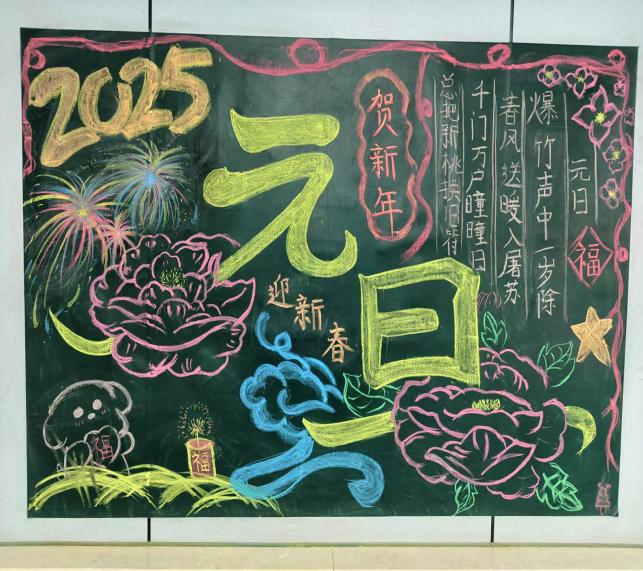 2025
元旦
贺新年
迎新春
元日
爆竹声中一岁除
春风送暖入屠苏
千门万户曈曈日
总把新桃换旧符
福
福
福